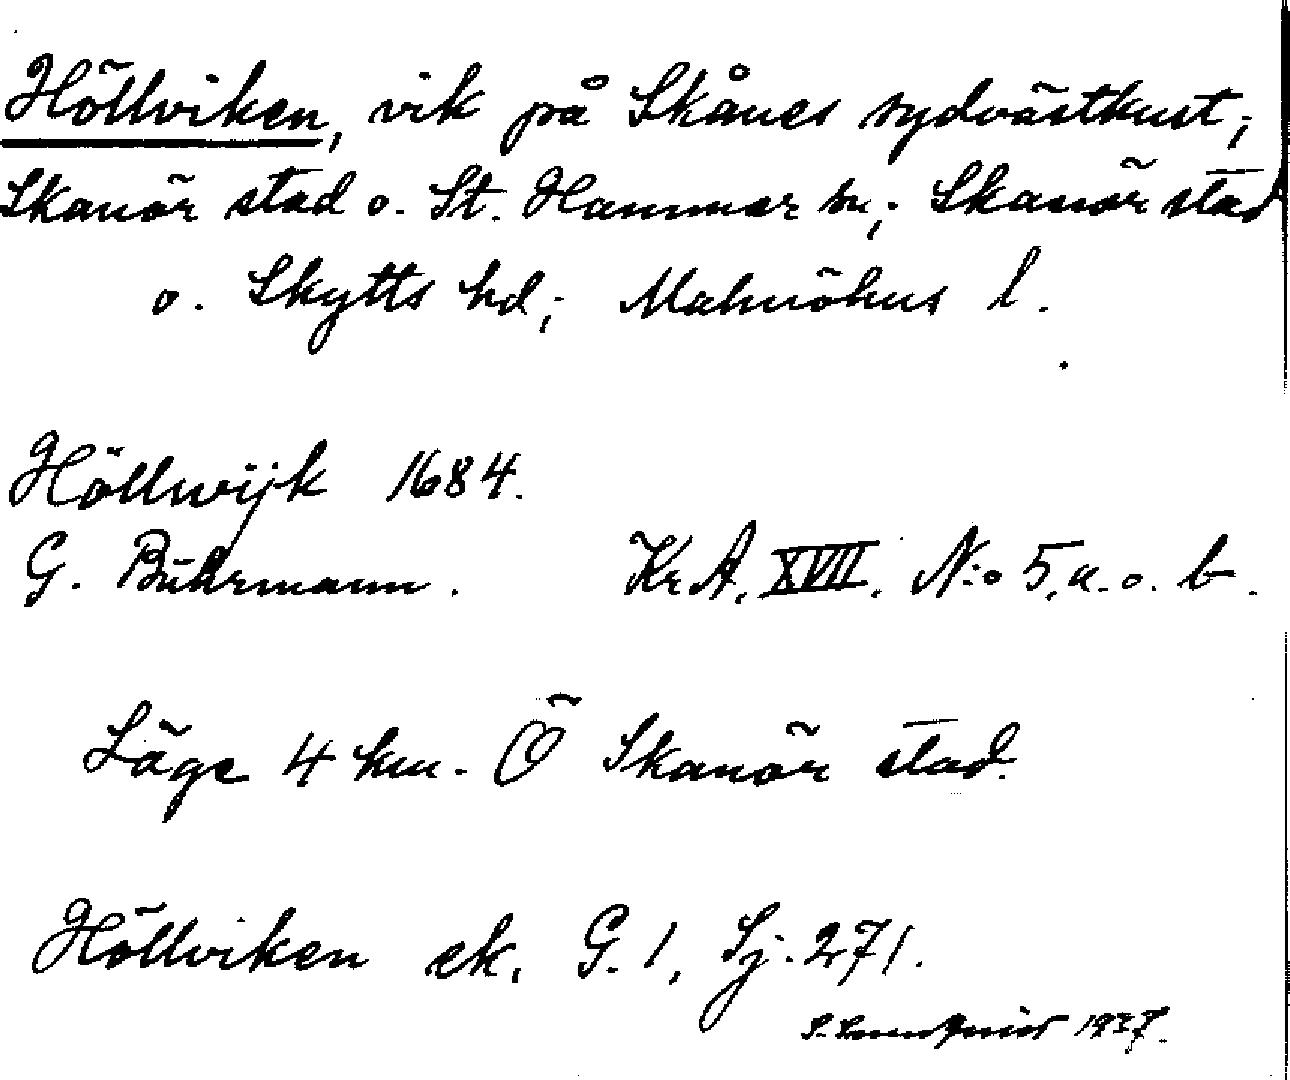 Höllviken, vik på Skånes sydvästkust;
Skanör stad o. St. Hammar sn; Skanör stad
o. Skytts hd; Malmöhus l.
Höllwijk 1684.
G. Buhrmann. Kr.A. XVII. N:o 5, a. o. b.
Läge 4 km. Ö Skanör stad.
Höllviken ek. G. 1, Sj. 271.
1937.